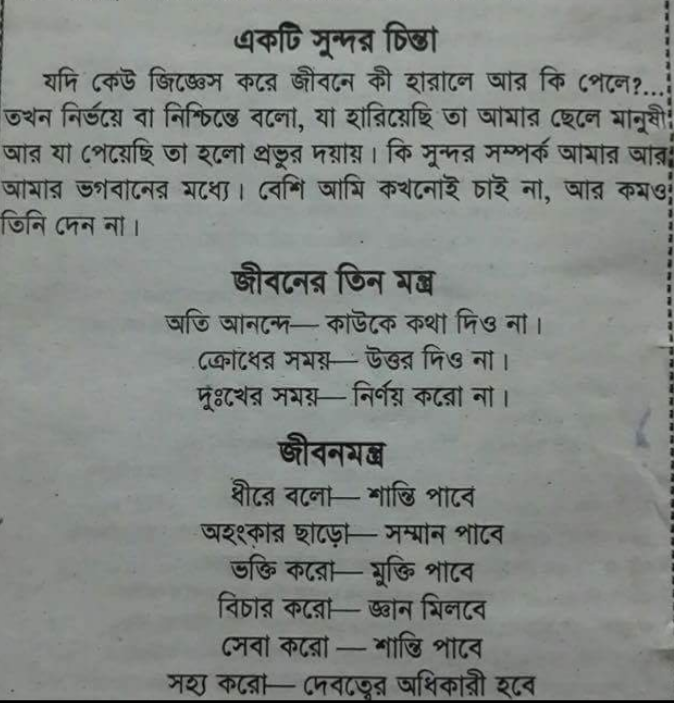 একটি সুন্দর চিন্তা
যদি কেউ জিজ্ঞেস করে জীবনে কী হারালে আর কি পেলে?...
তখন নির্ভয়ে বা নিশ্চিন্তে বলো, যা হারিয়েছি তা আমার ছেলে মানুষী
আর যা পেয়েছি তা হলো প্রভুর দয়ায়। কি সুন্দর সম্পর্ক আমার আর
আমার ভগবানের মধ্যে। বেশি আমি কখনোই চাই না, আর কমও
তিনি দেন না।
জীবনের তিন মন্ত্র
অতি আনন্দে— কাউকে কথা দিও না।
ক্রোধের সময়— উত্তর দিও না।
দুঃখের সময়— নির্ণয় করো না।
জীবনমন্ত্র
ধীরে বলো— শান্তি পাবে
অহংকার ছাড়ো— সম্মান পাবে
ভক্তি করো— মুক্তি পাবে
বিচার করো— জ্ঞান মিলবে
সেবা করো — শান্তি পাবে
সহ্য করো— দেবত্বের অধিকারী হবে